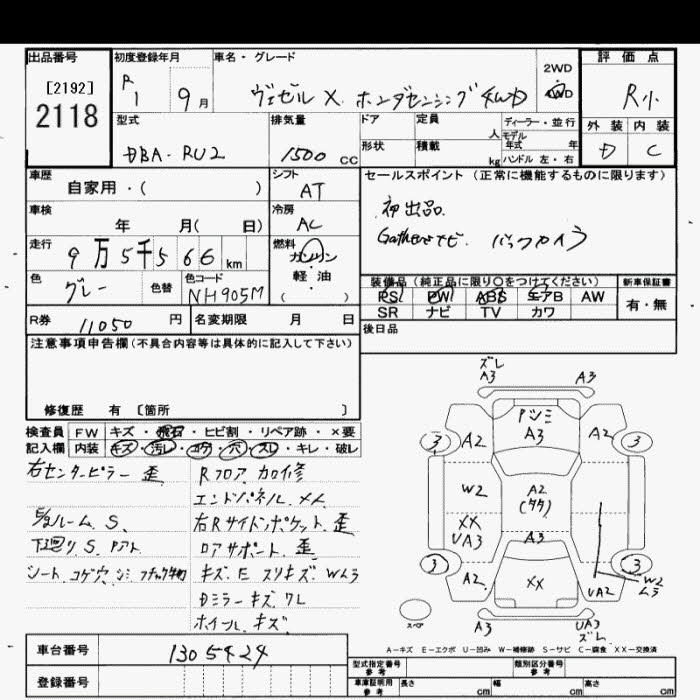 出品番号
[2192]
2118
初度登録年月
R1 9月
車名・グレード
ヴェゼル X ホンダセンシング 4WD
2WD
4WD
評価点
R小
外装 内装
D C
型式
DBA-RU2
排気量
1500 cc
ドア
形状
定員 人
積載 kg
ディーラー・並行
モデル年式 年
ハンドル 左・右
車歴
自家用・( )
シフト
AT
車検
年 月( 日)
冷房
AC
走行
9万5千566km
燃料
ガソリン
軽油
( )
色
グレー
色替
色コード
NH905M
R券 11050 円
名変期限 月 日
セールスポイント(正常に機能するものに限ります)
初出品
Gathersナビ バックカメラ
装備品(純正品に限り〇をつけてください)
PS PW ABS エアB AW
SR ナビ TV カワ
新車保証書
有・無
後日品
注意事項申告欄(不具合内容等は具体的に記入して下さい)
修復歴 有 [箇所 ]
検査員記入欄
FW キズ・飛石・ヒビ割・リペア跡・×要
内装 キズ・汚レ・コゲ・穴・スレ・キレ・破レ
右センターピラー 歪
Rフロア 加修
エンドパネル メム
E/gルーム S
右Rサイドポケット 歪
下廻り S
ロアサポート 歪
シート コゲ穴 シミ
キズ E スリキズ Wムラ
Dミラーキズ ワレ
ホイール キズ
ズレ
A3 A3
パンミ
A3
3 A2 A2 3
W2
A2
(タタ)
XX
UA3
A3
3 A2 XX UA2 3
W2
ムラ
スペア
A3 UA3
ズレ
A-キズ E-エクボ U-凹み W-補修跡 S-サビ C-腐食 XX-交換済
車台番号 1305424
登録番号
型式指定番号
参考
類別区分番号
参考
車庫証明用
参考
長さ cm 幅 cm 高さ cm